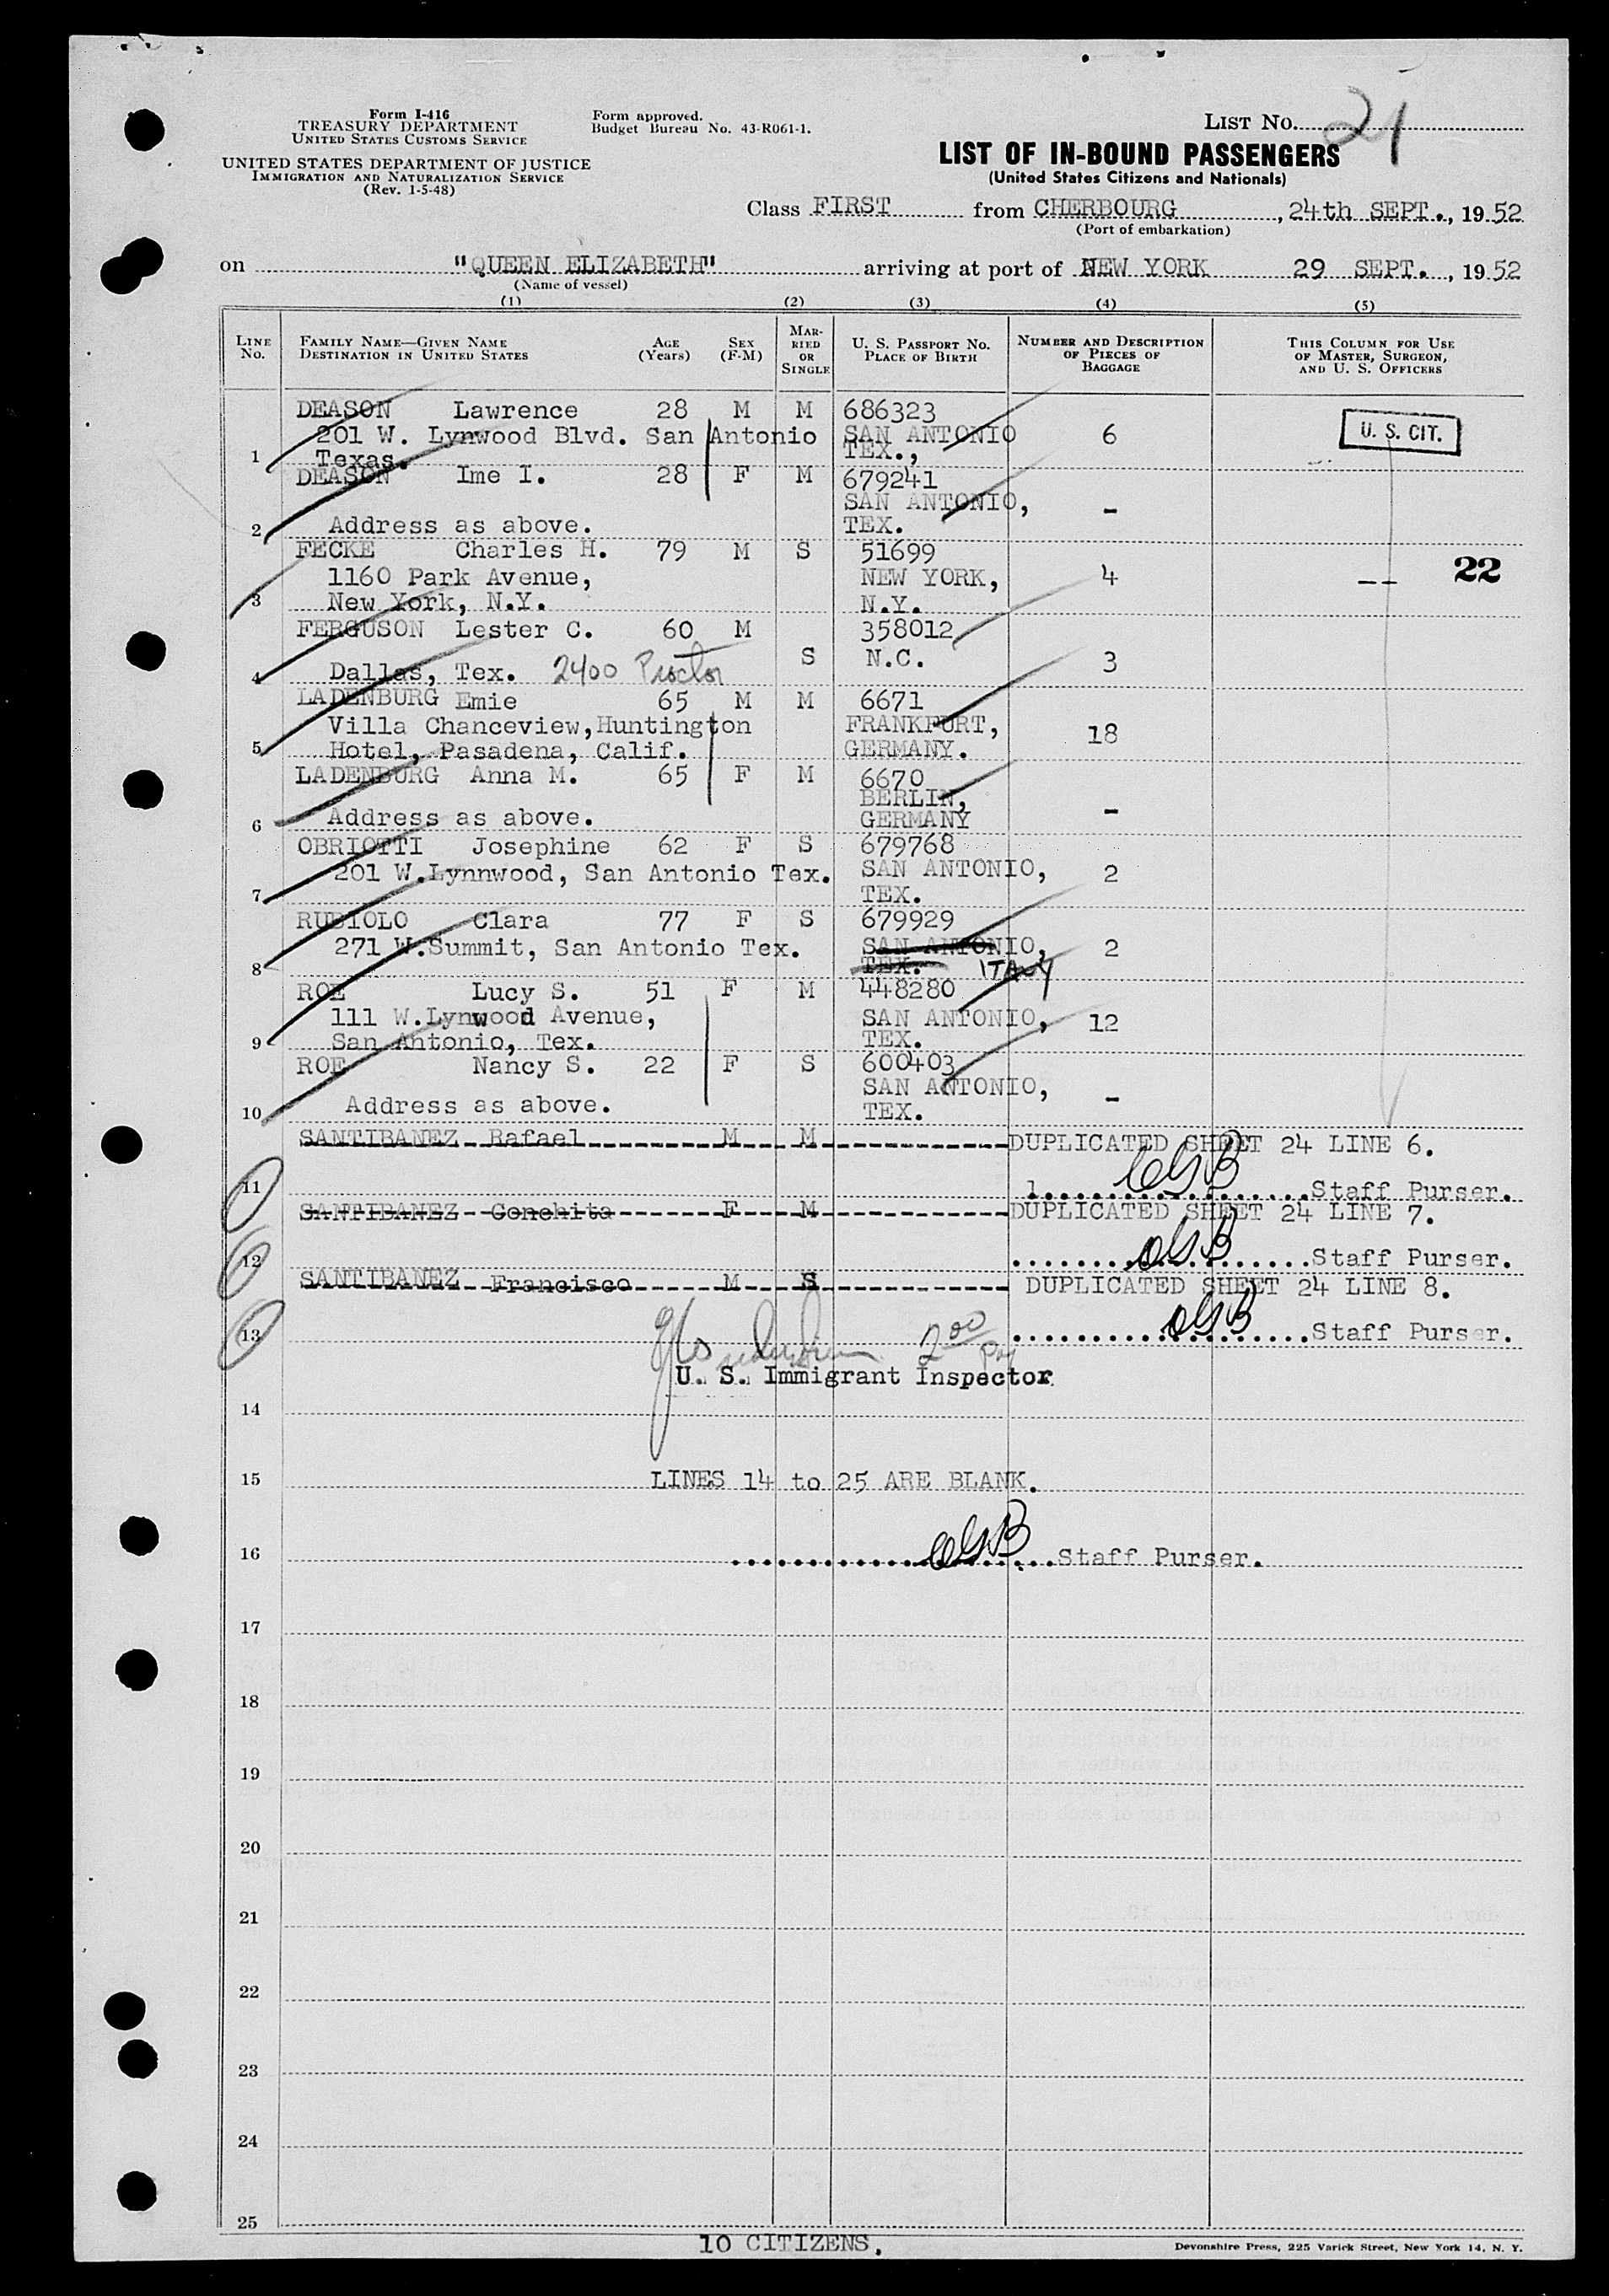 Form I-416
TREASURY DEPARTMENT
UNITED STATES CUSTOMS SERVICE
UNITED STATES DEPARTMENT OF JUSTICE
IMMIGRATION AND NATURALIZATION SERVICE
(Rev. 1-5-48)
Form approved.
Budget Bureau No. 43-R061-1.
LIST NO. 21
LIST OF IN-BOUND PASSENGERS
(United States Citizens and Nationals)
Class FIRST from CHERBOURG, 24th SEPT., 1952
(Port of embarkation)
on "QUEEN ELIZABETH" arriving at port of NEW YORK 29 SEPT., 1952
(Name of vessel)
(1) (2) (3) (4) (5)
LINE NO. FAMILY NAME—GIVEN NAME DESTINATION IN UNITED STATES AGE (Years) SEX (F-M) MARRIED OR SINGLE U. S. PASSPORT NO. PLACE OF BIRTH NUMBER AND DESCRIPTION OF PIECES OF BAGGAGE THIS COLUMN FOR USE OF MASTER, SURGEON, AND U. S. OFFICERS
DEASON Lawrence 28 M M 686323
201 W. Lynwood Blvd. San Antonio SAN ANTONIO 6 U. S. CIT.
1 Texas. TEX.,
DEASON Ime I. 28 F M 679241
SAN ANTONIO, -
2 Address as above. TEX.
FECKE Charles H. 79 M S 51699
1160 Park Avenue, NEW YORK, 4 -- 22
3 New York, N.Y. N.Y.
FERGUSON Lester C. 60 M 358012
S N.C. 3
4 Dallas, Tex. 2400 Proctor
LADENBURG Emie 65 M M 6671
Villa Chanceview, Huntington FRANKFURT, 18
5 Hotel, Pasadena, Calif. GERMANY.
LADENBURG Anna M. 65 F M 6670
BERLIN, -
6 Address as above. GERMANY
OBRIOTTI Josephine 62 F S 679768
201 W.Lynnwood, San Antonio Tex. SAN ANTONIO, 2
7 TEX.
RUBIOLO Clara 77 F S 679929
271 W.Summit, San Antonio Tex. SAN ANTONIO, 2
8 TEX. ITALY
ROE Lucy S. 51 F M 448280
111 W.Lynwood Avenue, SAN ANTONIO, 12
9 San Antonio, Tex. TEX.
ROE Nancy S. 22 F S 600403
SAN ANTONIO, -
10 Address as above. TEX.
SANTIBANEZ Rafael M M DUPLICATED SHEET 24 LINE 6.
11 1 Staff Purser.
SANTIBANEZ Conchita F M DUPLICATED SHEET 24 LINE 7.
12 Staff Purser.
SANTIBANEZ Francisco M S DUPLICATED SHEET 24 LINE 8.
13 Staff Purser.
2 00
U. S. Immigrant Inspector
14
15 LINES 14 to 25 ARE BLANK.
16 Staff Purser.
17
18
19
20
21
22
23
24
25
10 CITIZENS.
Devonshire Press, 225 Varick Street, New York 14, N. Y.